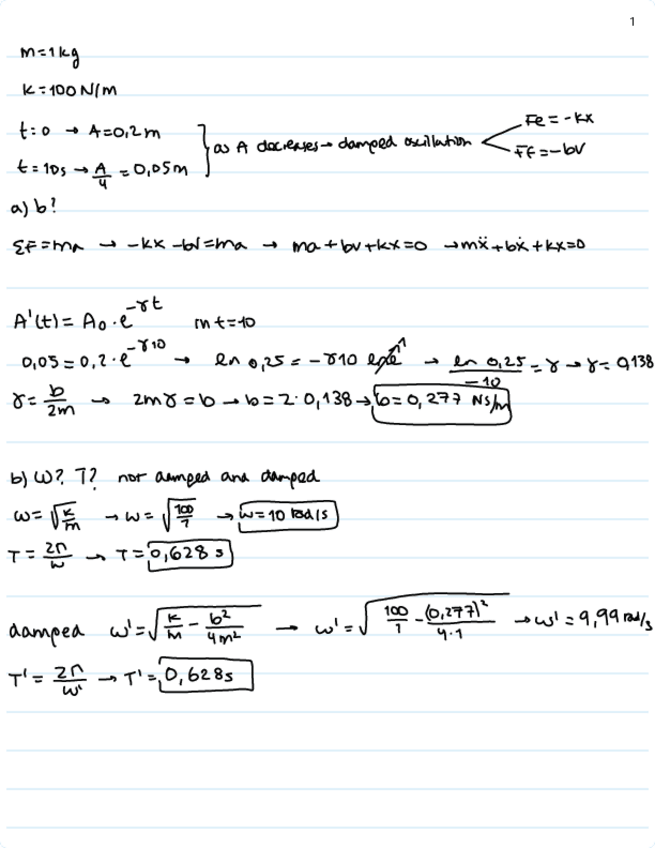 1
m=1kg
K=100N/m
t=0 → A=0,2m
t=10s → A/4 = 0,05m } as A decreases → damped oscillation < Fe=-kx
Ff=-bv
a) b?
ΣF=ma → -kx -bv=ma → ma+bv+kx=0 → mẍ+bẋ+kx=0
A'(t)= A₀·e^(-γt) in t=10
0,05=0,2·e^(-γ10) → ln 0,25 = -γ10 lne^1 → ln 0,25/-10 = γ → γ= 0,138
γ= b/2m → 2mγ=b → b=2·0,138 → b=0,277 Ns/m
b) ω? T? not damped and damped
ω=√(k/m) → ω=√(100/1) → ω=10 rad/s
T= 2π/ω → T= 0,628 s
damped ω'=√(k/m - b²/4m²) → ω'=√(100/1 - (0,277)²/4·1) → ω'=9,99 rad/s
T'= 2π/ω' → T'= 0,628s